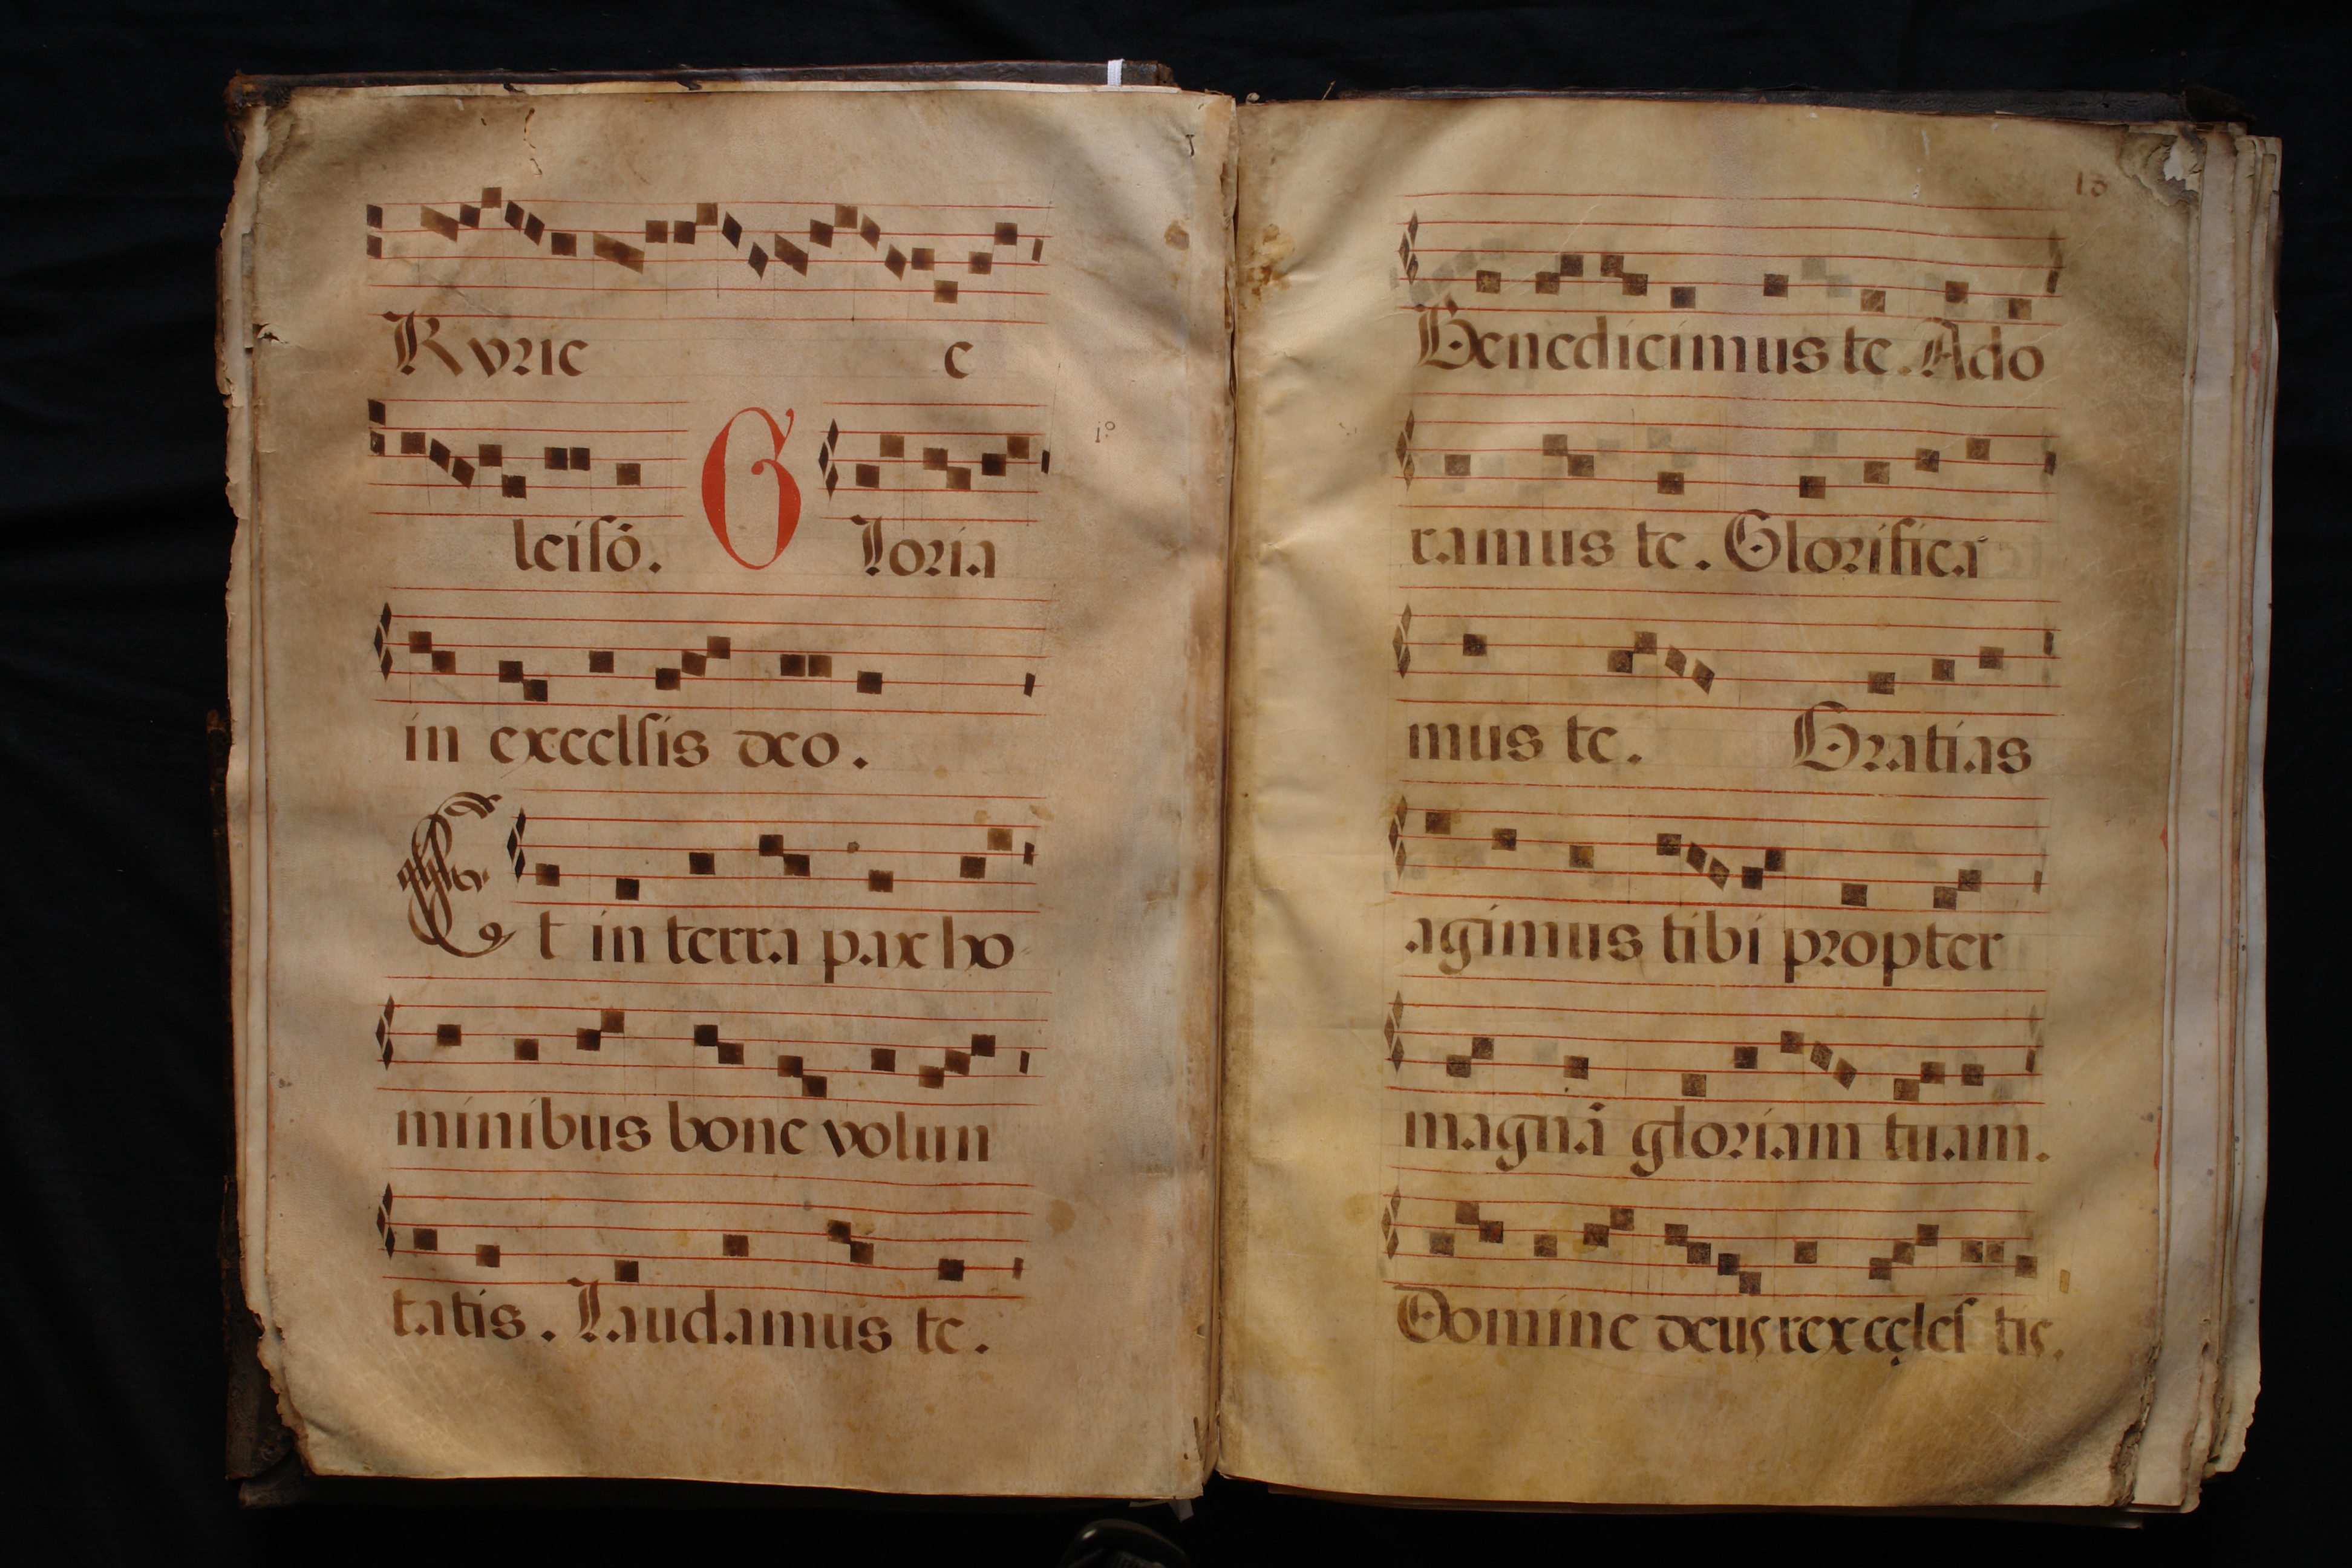 Kyrie e
leisõ. Gloria
1º
in excelsis deo.
Et in terra pax ho
minibus bone volun
tatis. Laudamus te.
13
Benedicimus te. Ado
ramus te. Glorifica
mus te. Gratias
agimus tibi propter
magnã gloriam tuam.
Domine deus rex cęles tis.